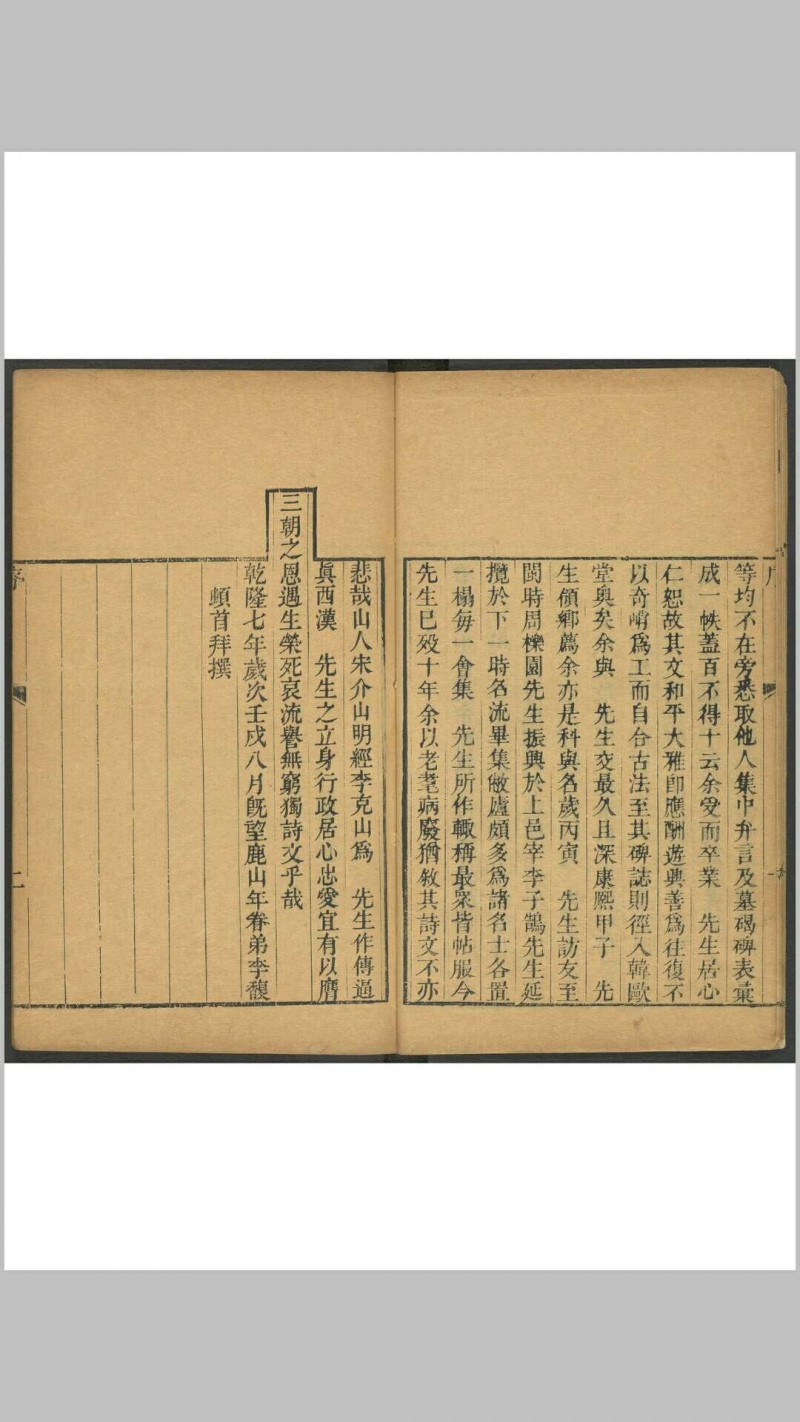 等均不在旁悉取他人集中弁言及墓碣碑表彙
成一帙蓋百不得十云余受而卒業　先生居心
仁恕故其文和平大雅卽應酬遊興善爲往復不
以奇峭爲工而自合古法至其碑誌則徑入韓歐
堂奧矣余與　先生交最久且深康熈甲子　先
生領鄉薦余亦是科與名歲丙寅　先生訪友至
閩時周櫟園先生振興於上邑宰李子鵠先生延
攬於下一時名流畢集敝廬頗多爲諸名士各置
一榻每一會集　先生所作輙稱最衆皆帖服今
先生已殁十年余以老耄病廢猶敘其詩文不亦
悲哉山人宋介山明經李克山爲　先生作傳逼
眞西漢　先生之立身行政居心忠愛宜有以膺
三朝之恩遇生榮死哀流譽無窮獨詩文乎哉
乾隆七年歲次壬戌八月旣望鹿山年眷弟李馥
頓首拜撰
序
二